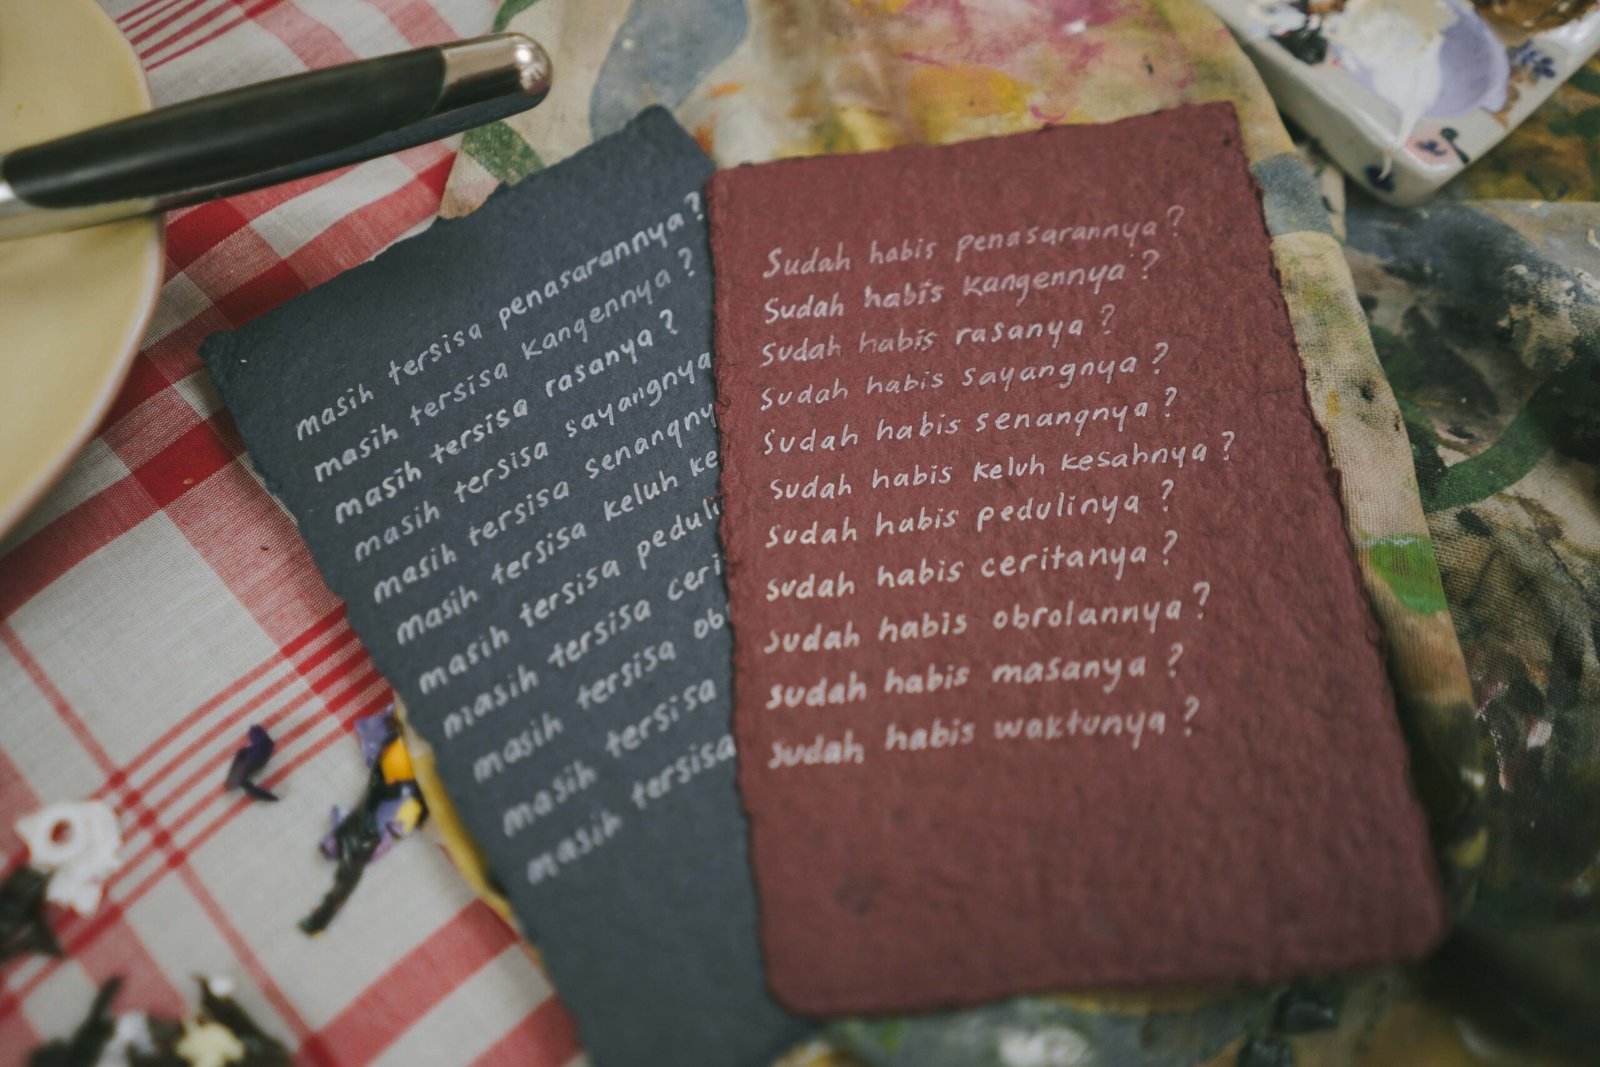 masih tersisa penasarannya?
masih tersisa kangennya?
masih tersisa rasanya?
masih tersisa sayangnya
masih tersisa
masih tersisa keluh
masih tersisa
masih tersisa
masih tersisa
masih tersisa
masih tersisa
Sudah habis penasarannya?
Sudah habis kangennya?
Sudah habis rasanya?
Sudah habis sayangnya?
Sudah habis senangnya?
Sudah habis keluh kesahnya?
Sudah habis pedulinya?
Sudah habis ceritanya?
Sudah habis obrolannya?
Sudah habis masanya?
Sudah habis waktunya?